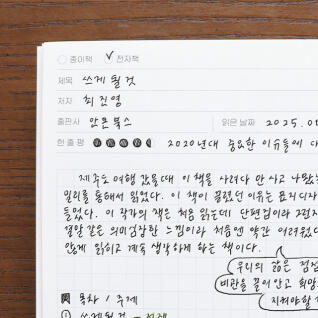 종이책 ✓ 전자책
제목 쓰게 될 것
저자 최진영
출판사 안온북스 읽은 날짜 2025. 0
한 줄 평 2020년대 중요한 이슈들에
제주도 여행 갔을 때 이 책을 사려다 안 사고 나왔는
밀리를 통해서 읽었다. 이 책이 끌렸던 이유는 표지 디자
들었다. 이 작가의 책은 처음 읽는데 단편집이라 그런지
결말 같은 의미심장한 느낌이라 처음엔 약간 어려웠다
않게 읽히고 계속 생각하게 하는 책이다.
우리의 삶은 점점
비관을 끌어안고 희망
지켜야 할
목차 / 주제
① 쓰게 될 것 -